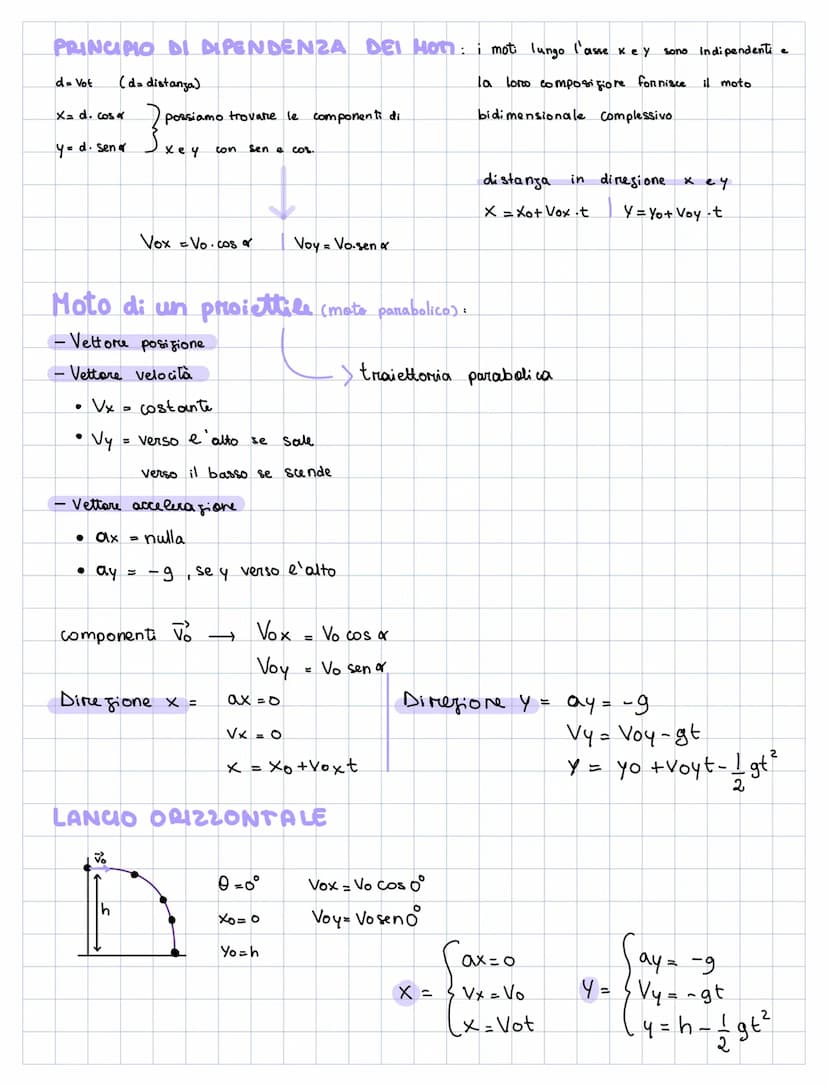 PRINCIPIO DI DIPENDENZA DEI MOTI: i moti lungo l'asse x e y sono indipendenti e
la loro composizione fornisce il moto
bidimensionale complessivo
d = Vot (d = distanza)
x = d. cos α
y = d. sen α
possiamo trovare le componenti di
x e y con sen e cos.
distanza in direzione x e y
X = Xo + Vox · t | Y = Yo + Voy · t
Vox = Vo. cos α | Voy = Vo. sen α
Moto di un proiettile (moto parabolico):
- Vettore posizione
- Vettore velocità
traiettoria parabolica
• Vx = costante
• Vy = verso l'alto se sale
verso il basso se scende
- Vettore accelerazione
• ax = nulla
• ay = -g, se y verso l'alto
componenti V⃗o → Vox = Vo cos α
Voy = Vo sen α
Direzione x = ax = 0
Vx = 0
x = Xo + Voxt
Direzione y = ay = -g
Vy = Voy - gt
Y = yo + Voyt - 1/2 gt²
LANCIO ORIZZONTALE
V⃗o
h
θ = 0° Vox = Vo cos 0°
Xo = 0 Voy = Vo sen 0°
Yo = h
X = { ax = 0
Vx = Vo
x = Vot
Y = { ay = -g
Vy = -gt
y = h - 1/2 gt²